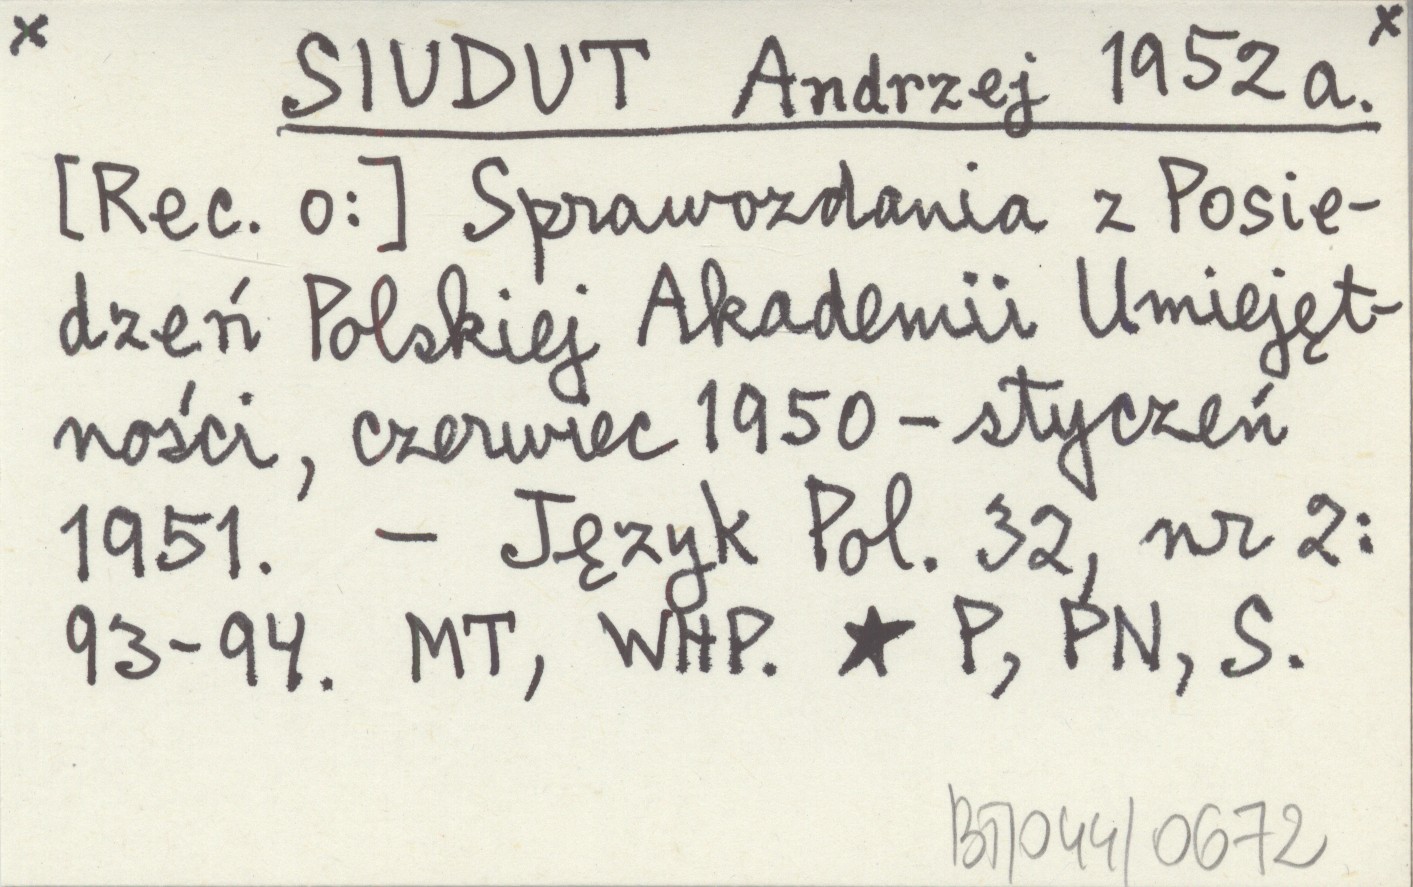 x SIUDUT Andrzej 1952 a. x
[Rec. o:] Sprawozdania z Posie-
dzeń Polskiej Akademii Umiejęt-
ności, czerwiec 1950 – styczeń
1951. – Język Pol. 32, nr 2:
93-94. MT, WHP. ★ P, PN, S.
BT/044/0672